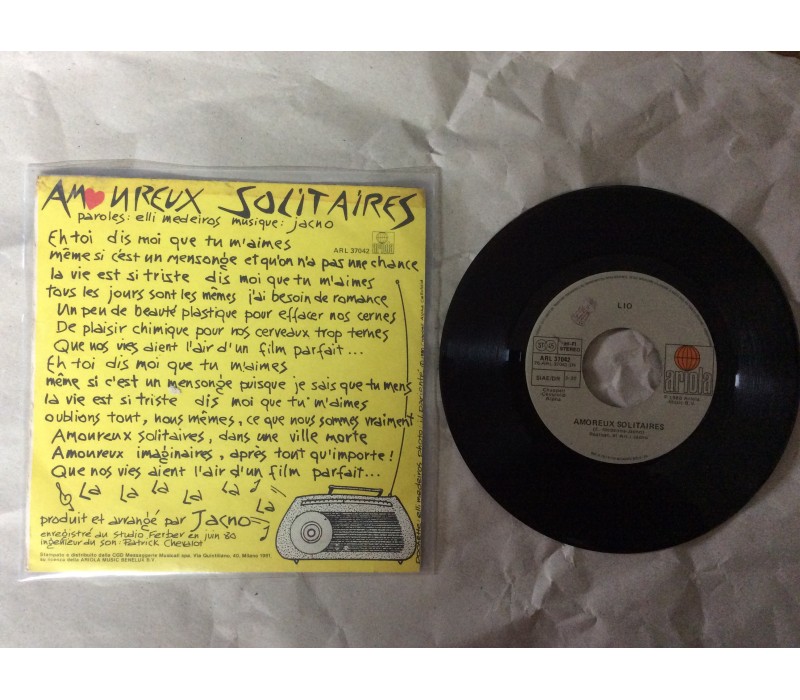 AMOUREUX SOLITAIRES
paroles: elli medeiros musique: jacno
ARL 37042
Eh toi dis moi que tu m'aimes
même si c'est un mensonge et qu'on n'a pas une chance
la vie est si triste dis moi que tu m'aimes
tous les jours sont les mêmes j'ai besoin de romance
Un peu de beauté plastique pour effacer nos cernes
De plaisir chimique pour nos cerveaux trop ternes
Que nos vies aient l'air d'un film parfait...
Eh toi dis moi que tu m'aimes
même si c'est un mensonge puisque je sais que tu mens
la vie est si triste dis moi que tu m'aimes
oublions tout, nous mêmes, ce que nous sommes vraiment
Amoureux solitaires, dans une ville morte
Amoureux imaginaires, après tout qu'importe!
Que nos vies aient l'air d'un film parfait...
La La La La La La
produit et arrangé par Jacno
enregistré au Studio Ferber en juin 80
ingenieur du son: Patrick Chevalot
Stampato e distribuito dalla CGD Messaggerie Musicali spa. Via Quintiliano, 40. Milano 1981
su licenza della ARIOLA MUSIC BENELUX B.V.
elli medeiros
LIO
STEREO
ARL 37042
SIAE/DIR
ariola
AMOREUX SOLITAIRES